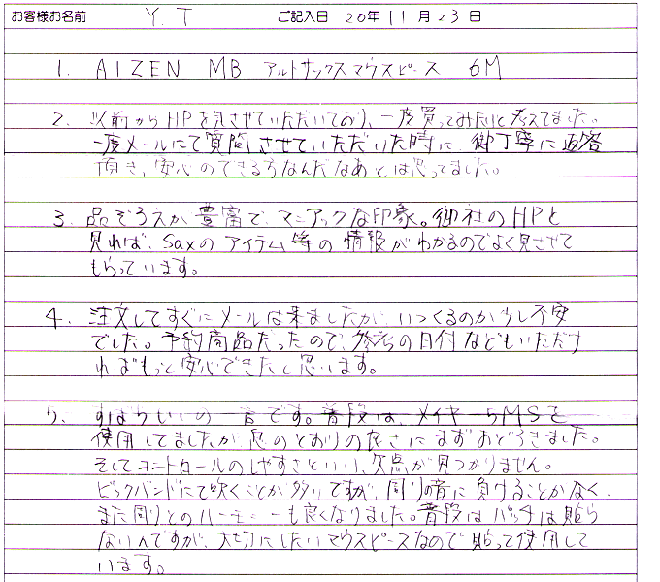 お客様お名前 Y.T ご記入日 20年11月23日
1. AIZEN MB アルトサックスマウスピース 6M
2. 以前からHPを見させていただいており、一度買ってみたいと考えてました。
一度メールにて質問させていただいた時に、御丁寧に返答
頂き、安心のできるお店なんだなあとは思ってました。
3. 品ぞろえが豊富で、マニアックな印象。御社のHPを
見れば、Saxのアイテム等の情報がわかるのでよく見させて
もらっています。
4. 注文してすぐにメールは来ましたが、いつくるのか少し不安
でした。予約商品だったので、発送の日付などもいただけ
ればもっと安心できたと思います。
5. すばらしいの一言です。普段は、メイヤー5MSを
使用してましたが、息のとおりの良さにまずおどろきました。
そしてコントロールのしやすさといい、欠点が見つかりません。
ビックバンドにて吹くことが多いですが、周りの音に負けることがなく、
また周りとのハーモニーも良くなりました。普段はパッチは貼ら
ないんですが、大切にしたいマウスピースなので貼って使用して
います。